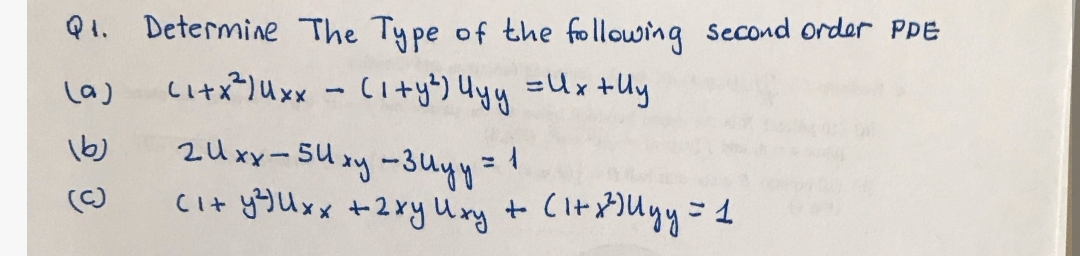 Q1. Determine The Type of the following second order PDE
(a) (1+x²)Uxx - (1+y²) Uyy = Ux + Uy
(b) 2Uxx - 5Uxy - 3Uyy = 1
(c) (1+ y²)Uxx + 2xy Uxy + (1+x²)Uyy = 1